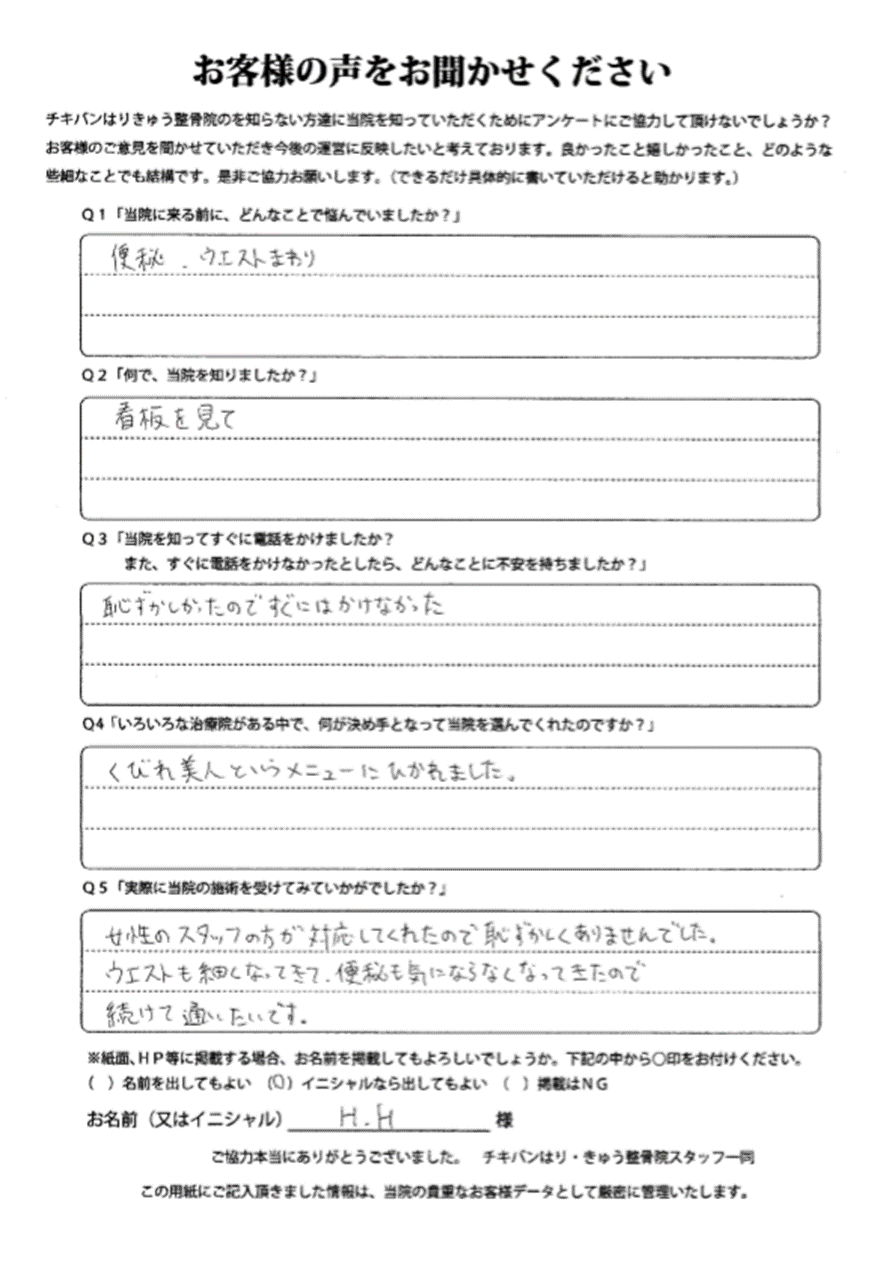 お客様の声をお聞かせください
チキバンはりきゅう整骨院のを知らない方達に当院を知っていただくためにアンケートにご協力して頂けないでしょうか？
お客様のご意見を聞かせていただき今後の運営に反映したいと考えております。良かったこと嬉しかったこと、どのような
些細なことでも結構です。是非ご協力お願いします。（できるだけ具体的に書いていただけると助かります。）
Ｑ１「当院に来る前に、どんなことで悩んでいましたか？」
便秘．ウエストまわり
Ｑ２「何で、当院を知りましたか？」
看板を見て
Ｑ３「当院を知ってすぐに電話をかけましたか？
また、すぐに電話をかけなかったとしたら、どんなことに不安を持ちましたか？」
恥ずかしかったのですぐにはかけなかった
Ｑ4「いろいろな治療院がある中で、何が決め手となって当院を選んでくれたのですか？」
くびれ美人というメニューにひかれました。
Ｑ５「実際に当院の施術を受けてみていかがでしたか？」
女性のスタッフの方が対応してくれたので恥ずかしくありませんでした。
ウエストも細くなってきて、便秘も気にならなくなってきたので
続けて通いたいです。
※紙面、ＨＰ等に掲載する場合、お名前を掲載してもよろしいでしょうか。下記の中から〇印をお付けください。
（　）名前を出してもよい　（〇）イニシャルなら出してもよい　（　）掲載はＮＧ
お名前（又はイニシャル）　H.H　様
ご協力本当にありがとうございました。　チキバンはり・きゅう整骨院スタッフ一同
この用紙にご記入頂きました情報は、当院の貴重なお客様データとして厳密に管理いたします。